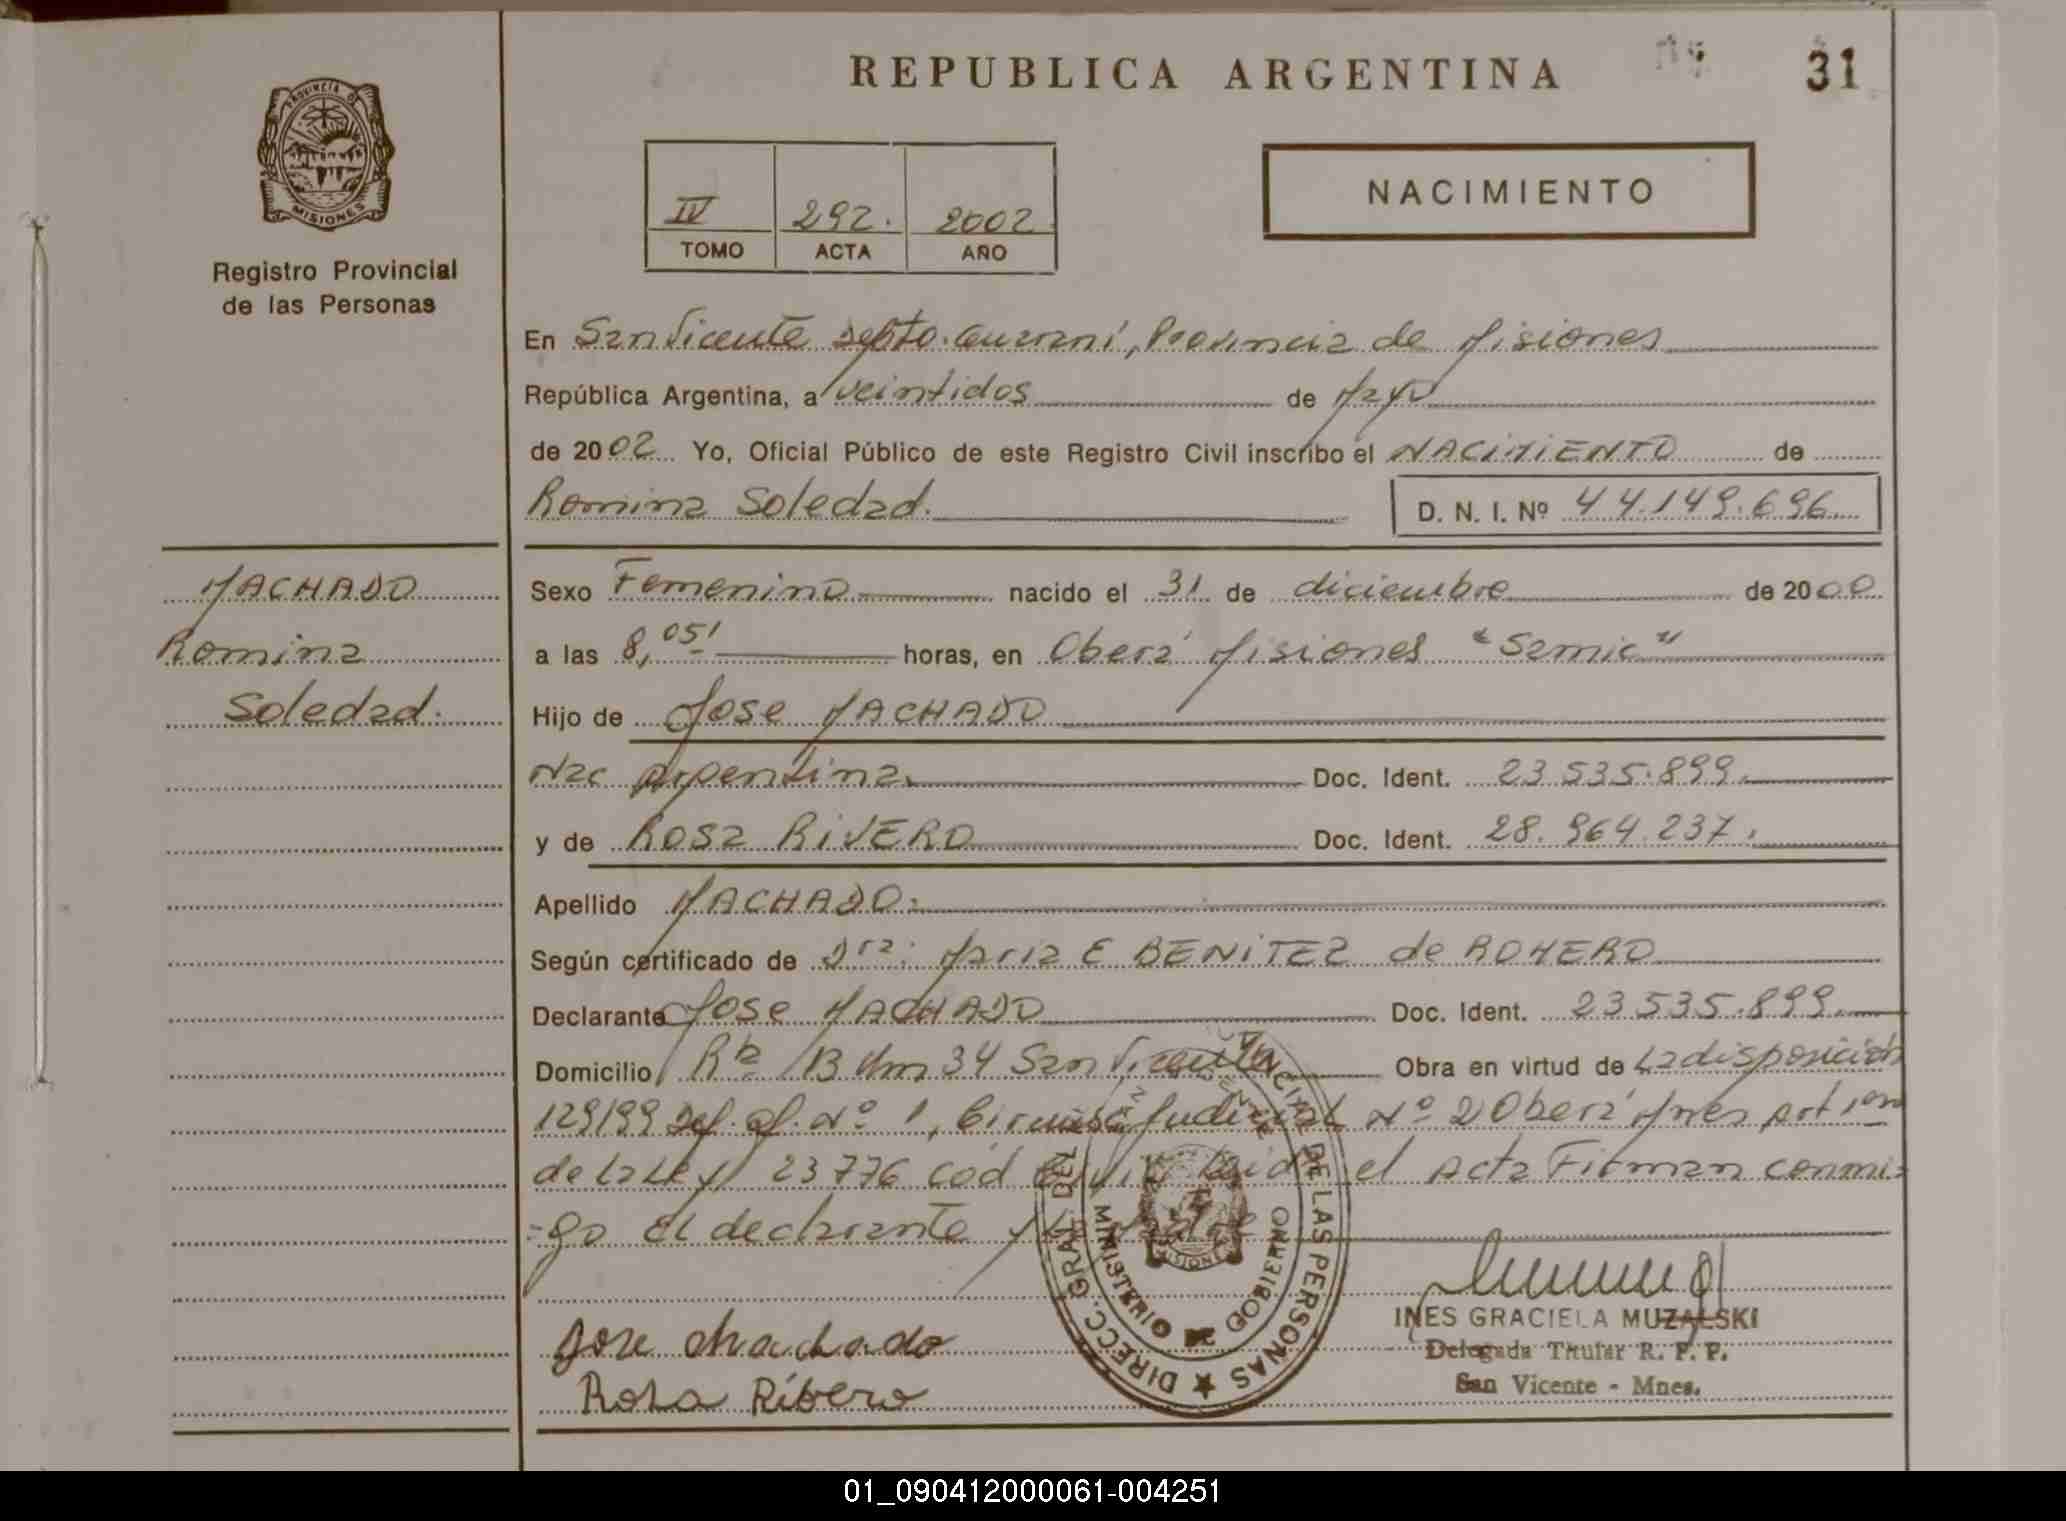 REPUBLICA ARGENTINA
31
PROVINCIA DE
MISIONES
Registro Provincial
de las Personas
IV 292. 2002
TOMO ACTA AÑO
NACIMIENTO
En San Vicente Depto. Guaraní, Provincia de Misiones
República Argentina, a veintidos de Mayo
de 2002 Yo, Oficial Público de este Registro Civil inscribo el NACIMIENTO de
Romina Soledad. D. N. I. Nº 44.149.696
MACHADO
Romina
Soledad.
Sexo Femenino nacido el 31 de diciembre de 2000
a las 8,05' horas, en Oberá Misiones "Samic"
Hijo de Jose MACHADO
Nac Argentina. Doc. Ident. 23.535.899.
y de Rosa RiVERO Doc. Ident. 28.964.237.
Apellido MACHADO.
Según certificado de Dra: Maria E BENiTEZ de ROMERO
Declarante Jose MACHADO Doc. Ident. 23.535.899.
Domicilio Rta 13 Km 34 San Vicente Obra en virtud de La disposición
129/99 Def. Of. Nº 1, Circunsc Judicial Nº 2 Oberá Mnes Art 1
de la Ley 23776 cód Civil Leida el Acta Firman conmi
=go El declarante y la Madre
Jose Machado
Rosa Ribero
DIRECC. GRAL. DEL REG. PROVINCIAL DE LAS PERSONAS
MINISTERIO DE GOBIERNO
MISIONES
INES GRACIELA MUZALSKI
Delegada Titular R. P. P.
San Vicente - Mnes.
01_090412000061-004251